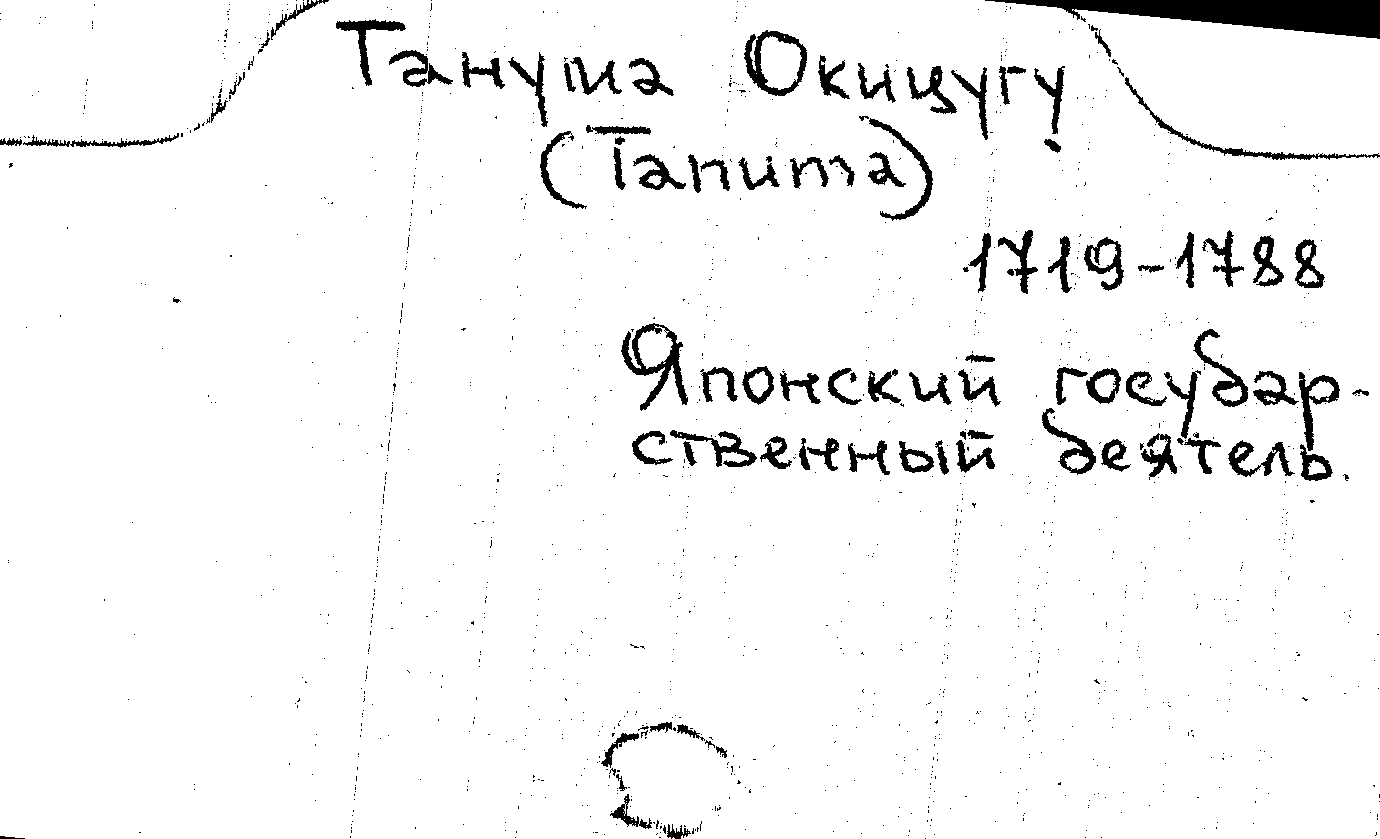 Танума Окицугу
(Tanuma)
1719-1788
Японский государ-
ственный деятель.